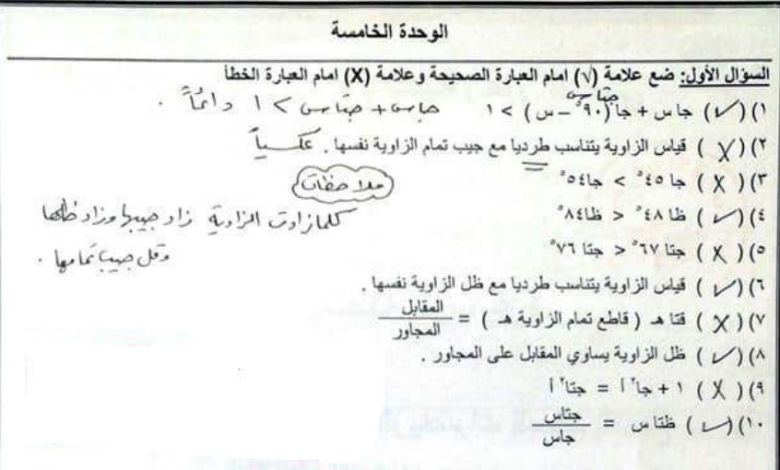 الوحدة الخامسة
السؤال الأول: ضع علامة (√) امام العبارة الصحيحة وعلامة (X) امام العبارة الخطأ
جتا س
١) (✓) جا س + جا (٩٠° – س) > ١ جا س + جتا س > ١ دائماً .
٢) (X) قياس الزاوية يتناسب طرديا مع جيب تمام الزاوية نفسها . عكسياً
٣) (X) جا ٤٥° > جا٥٤° ملاحظات
٤) (✓) ظا ٤٨° > ظا٨٤° كلما زادت الزاوية زاد جيبها وزاد ظلها
٥) (X) جتا ٦٧° > جتا ٧٦° وقل جيب تمامها .
٦) (✓) قياس الزاوية يتناسب طرديا مع ظل الزاوية نفسها .
٧) (X) قتا هـ ( قاطع تمام الزاوية هـ ) = المقابل / المجاور
٨) (✓) ظل الزاوية يساوي المقابل على المجاور .
٩) (X) ١ + جا٢ أ = جتا٢ أ
١٠) (✓) ظتا س = جتاس / جاس